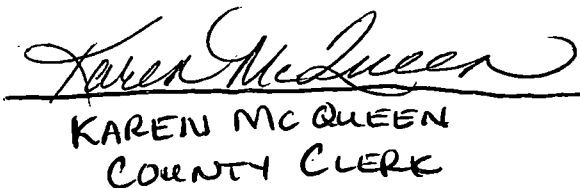 Karen McQueen
KAREN MCQUEEN
COUNTY CLERK